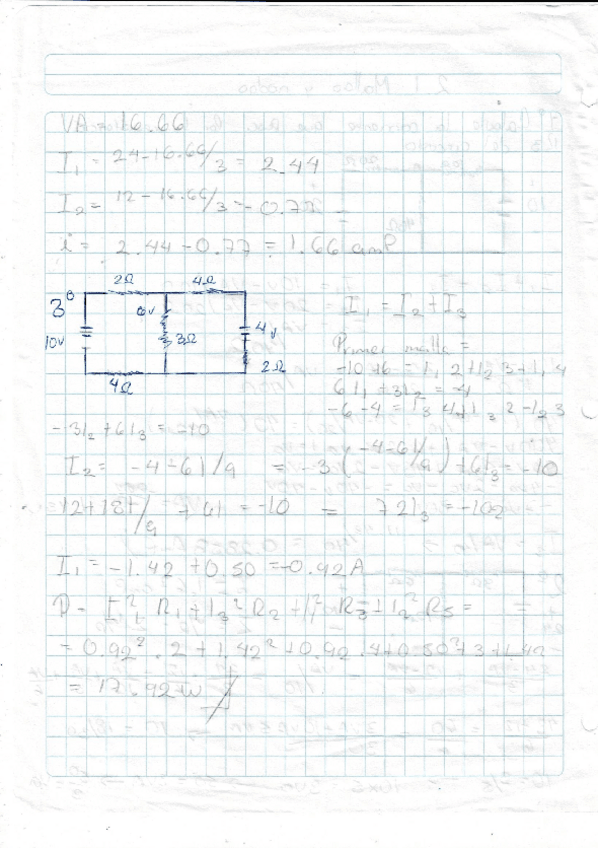 VA = 16.66
I₁ = 24-16.66/3 = 2.44
I₂ = 12-16.66/3 = -0.77
i = 2.44-0.77 = 1.66 amp
3°
2Ω 4Ω
6v
10v 3Ω 4v
2Ω
4Ω
I₁ = I₂ + I₃
Primer malla =
-10+6 = I₁ 2+I₂ 3+I₁ 4
6I₁ + 3I₂ = -4
-6-4 = I₃ 4+I₃ 2-I₂3
-3I₂+6I₃ = -10
I₂ = -4-6I/9 = -3(-4-6I/9)+6I₃ = -10
12+18I/9 +6I = -10 = 72I₃ = -102
I₁ = -1.42+0.50 = -0.92A
P = I₁² R₁ + I₃² R₂ + I₁² R₃ + I₂² R₅ =
= 0.92² . 2 + 1.42² + 0.92 . 4 + 0.50² 3 + 1.42
= 17.92w